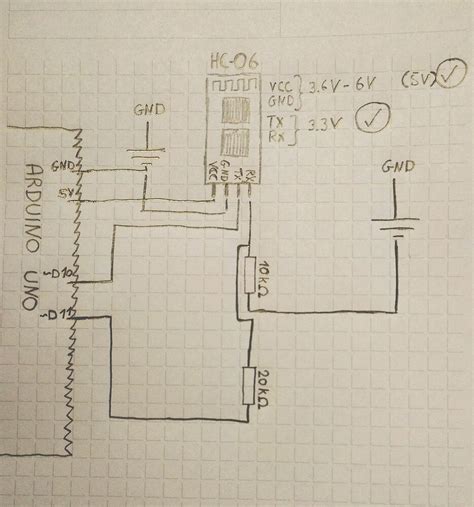 HC-06
VCC } 3.6V - 6V (5V)
GND
TX } 3.3V
RX
GND
GND
5V
ARDUINO UNO
~D10
~D11
VCC
GND
TX
RX
GND
10kΩ
20kΩ